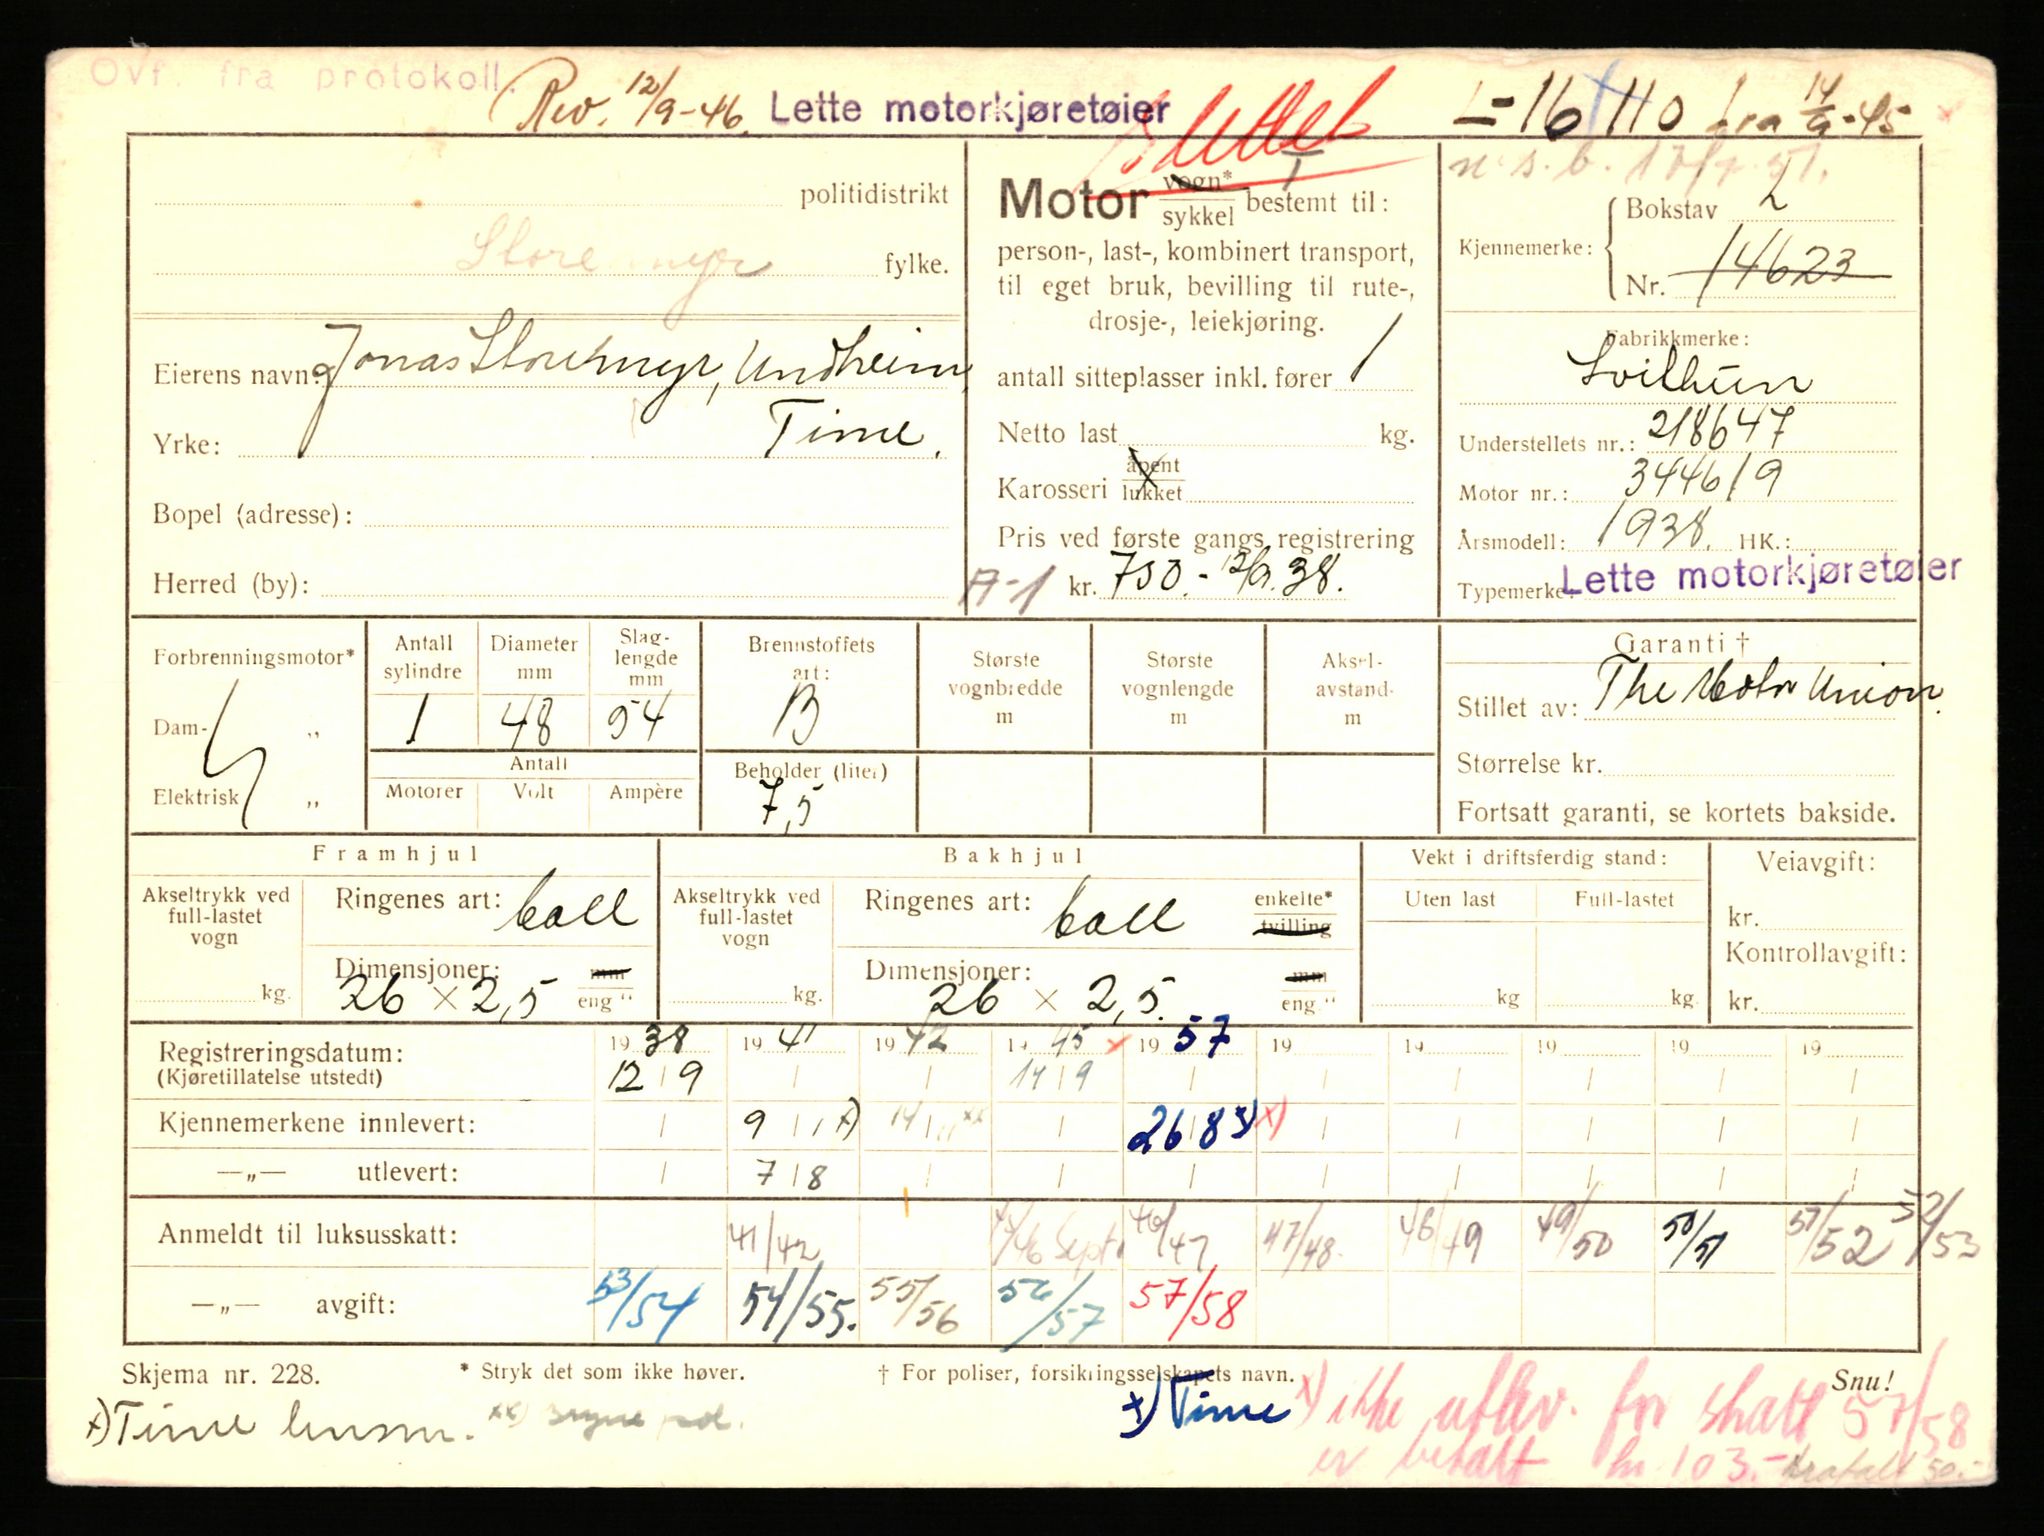 Ovf. fra protokoll.
Rev. 12/9-46. Lette motorkjøretøier Slettet L-16110 fra 14/9-45
n.s.b.
politidistrikt
Storemyr fylke.
Eierens navn: Jonas Storemyr, Undheim
Yrke: Time.
Bopel (adresse):
Herred (by):
Motor vogn* / sykkel bestemt til:
person-, last-, kombinert transport,
til eget bruk, bevilling til rute-,
drosje-, leiekjøring.
antall sitteplasser inkl. fører 1
Netto last kg.
Karosseri åpent / lukket
Pris ved første gangs registrering
A-1 kr. 750.- 12/9.38.
Kjennemerke: Bokstav L
Nr. 14623
Fabrikkmerke:
Svithun
Understellets nr.: 218647
Motor nr.: 344619
Årsmodell: 1938. HK.:
Typemerke: Lette motorkjøretøier
Forbrenningsmotor*
Dam- „
Elektrisk „
Antall sylindre Diameter mm Slaglengde mm
1 48 54
Antall
Motorer Volt Ampère
Brennstoffets art:
B
Beholder (liter)
7,5
Største vognbredde m
Største vognlengde m
Aksel-avstand m
Garanti †
Stillet av: The Motor Union.
Størrelse kr.
Fortsatt garanti, se kortets bakside.
Framhjul
Akseltrykk ved full-lastet vogn kg.
Ringenes art: ball
Dimensjoner: 26 × 2,5 mm / eng "
Bakhjul
Akseltrykk ved full-lastet vogn kg.
Ringenes art: ball enkelte* / tvilling
Dimensjoner: 26 × 2,5. mm / eng "
Vekt i driftsferdig stand:
Uten last Full-lastet
kg kg.
Veiavgift:
kr.
Kontrollavgift:
kr.
Registreringsdatum: 1938 1941 1942 1945 × 1957 19 19 19 19 19
(Kjøretillatelse utstedt) 12 9 14 9
Kjennemerkene innlevert: 9 11 x) 14 11 xx 26 8 x) x)
—„— utlevert: 7 8
Anmeldt til luksusskatt: 41/42 Sept. 46/47 47/48. 48/49 49/50 50/51 51/52 52/53
—„— avgift: 53/54 54/55. 55/56 56/57 57/58
Skjema nr. 228. * Stryk det som ikke høver. † For poliser, forsikringsselskapets navn. Snu!
x) Time lensm. xx) Bryne pol. x) Time x) ikke utlev. før skatt 57/58
er betalt kr. 103.- 50.-